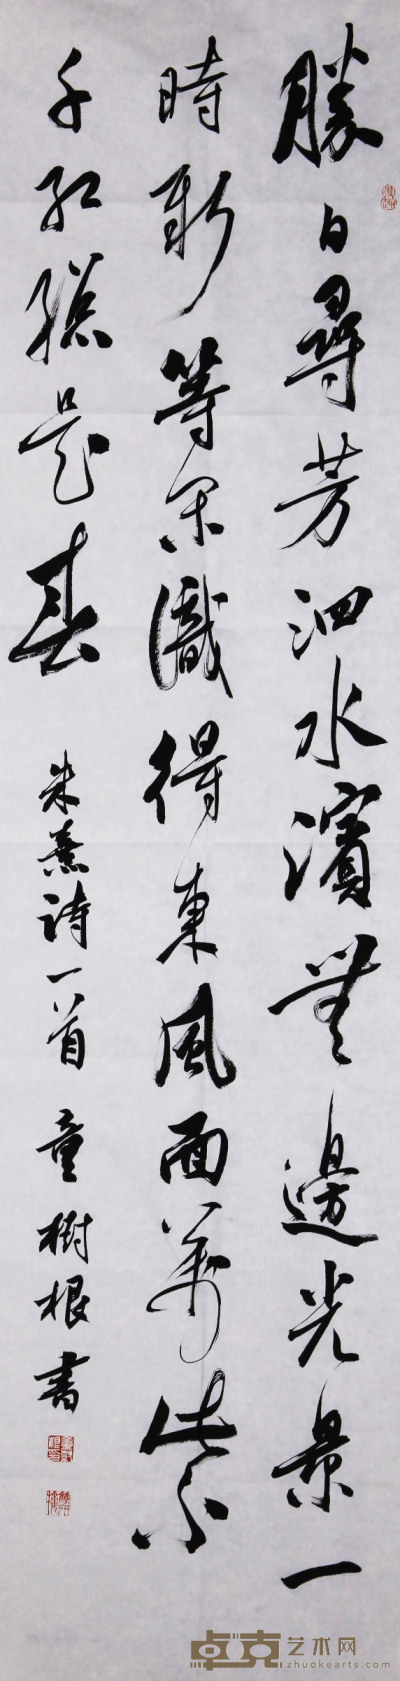 勝日尋芳泗水濱無邊光景一
時新等閑識得東風面萬紫
千紅總是春
朱熹诗一首 童樹根書
卓克艺术网
zhuokearts.com